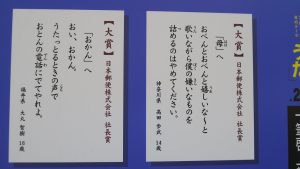 【大賞】日本郵便株式会社 社長賞
「母」へ
おべんとおべんと嬉しいな～と
歌いながら僕の嫌いなものを
詰めるのはやめてください。
神奈川県 高田 歩武 14歳
【大賞】日本郵便株式会社 社長賞
「おかん」へ
おい、おかん。
うたっとるときの声で
おとんの電話にでてやれよ。
福井県 大久 智樹 16歳